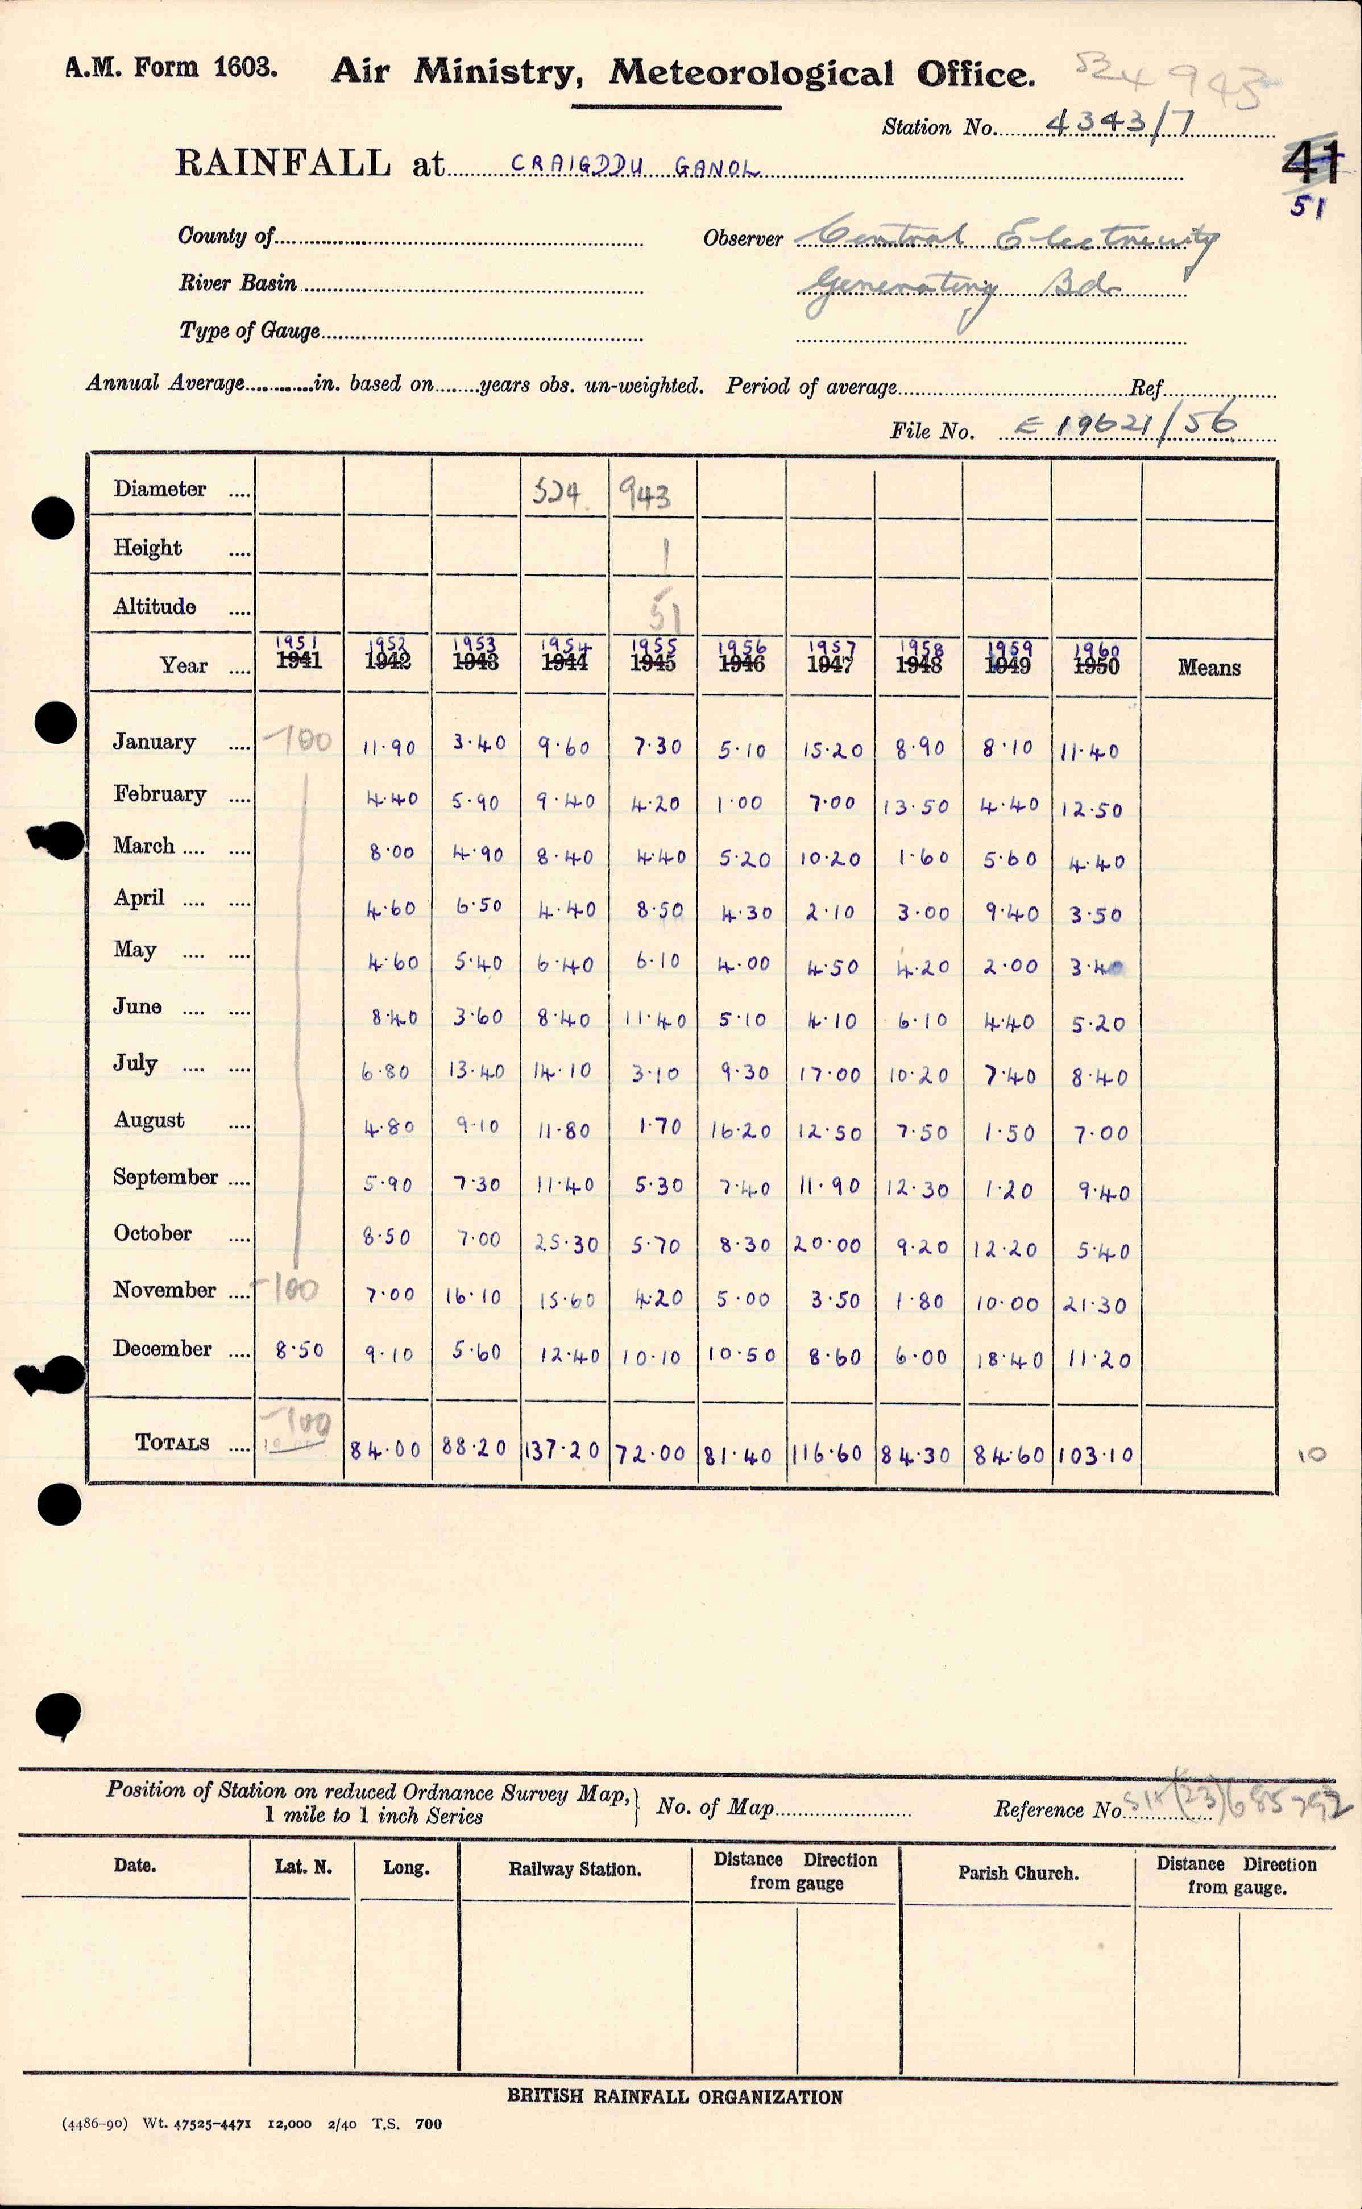 A.M. Form 1603. Air Ministry, Meteorological Office. 524 943
Station No. 4343/7
RAINFALL at CRAIGDDU GANOL 41
51
County of Observer Central Electricity
River Basin Generating Bd.
Type of Gauge
Annual Average in. based on years obs. un-weighted. Period of average Ref.
File No. E 19621/56
Diameter 524 943
Height 1
Altitude 51
1951 1952 1953 1954 1955 1956 1957 1958 1959 1960
Year 1941 1942 1943 1944 1945 1946 1947 1948 1949 1950 Means
January -100 11.90 3.40 9.60 7.30 5.10 15.20 8.90 8.10 11.40
February 4.40 5.90 9.40 4.20 1.00 7.00 13.50 4.40 12.50
March 8.00 4.90 8.40 4.40 5.20 10.20 1.60 5.60 4.40
April 4.60 6.50 4.40 8.50 4.30 2.10 3.00 9.40 3.50
May 4.60 5.40 6.40 6.10 4.00 4.50 4.20 2.00 3.40
June 8.40 3.60 8.40 11.40 5.10 4.10 6.10 4.40 5.20
July 6.80 13.40 14.10 3.10 9.30 17.00 10.20 7.40 8.40
August 4.80 9.10 11.80 1.70 16.20 12.50 7.50 1.50 7.00
September 5.90 7.30 11.40 5.30 7.40 11.90 12.30 1.20 9.40
October 8.50 7.00 25.30 5.70 8.30 20.00 9.20 12.20 5.40
November -100 7.00 16.10 15.60 4.20 5.00 3.50 1.80 10.00 21.30
December 8.50 9.10 5.60 12.40 10.10 10.50 8.60 6.00 18.40 11.20
TOTALS -100 84.00 88.20 137.20 72.00 81.40 116.60 84.30 84.60 103.10 10
Position of Station on reduced Ordnance Survey Map, No. of Map Reference No. (23)
1 mile to 1 inch Series
Date. Lat. N. Long. Railway Station. Distance Direction from gauge Parish Church. Distance Direction from gauge.
BRITISH RAINFALL ORGANIZATION
(4486-90) Wt. 47525-4471 12,000 2/40 T.S. 700